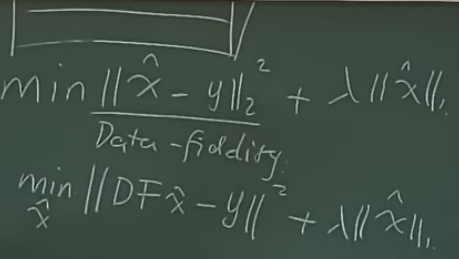 min ||x̂ - y||₂² + λ||x̂||₁
Data-fiddity.
min ||DFx̂ - y||² + λ||x̂||₁
x̂